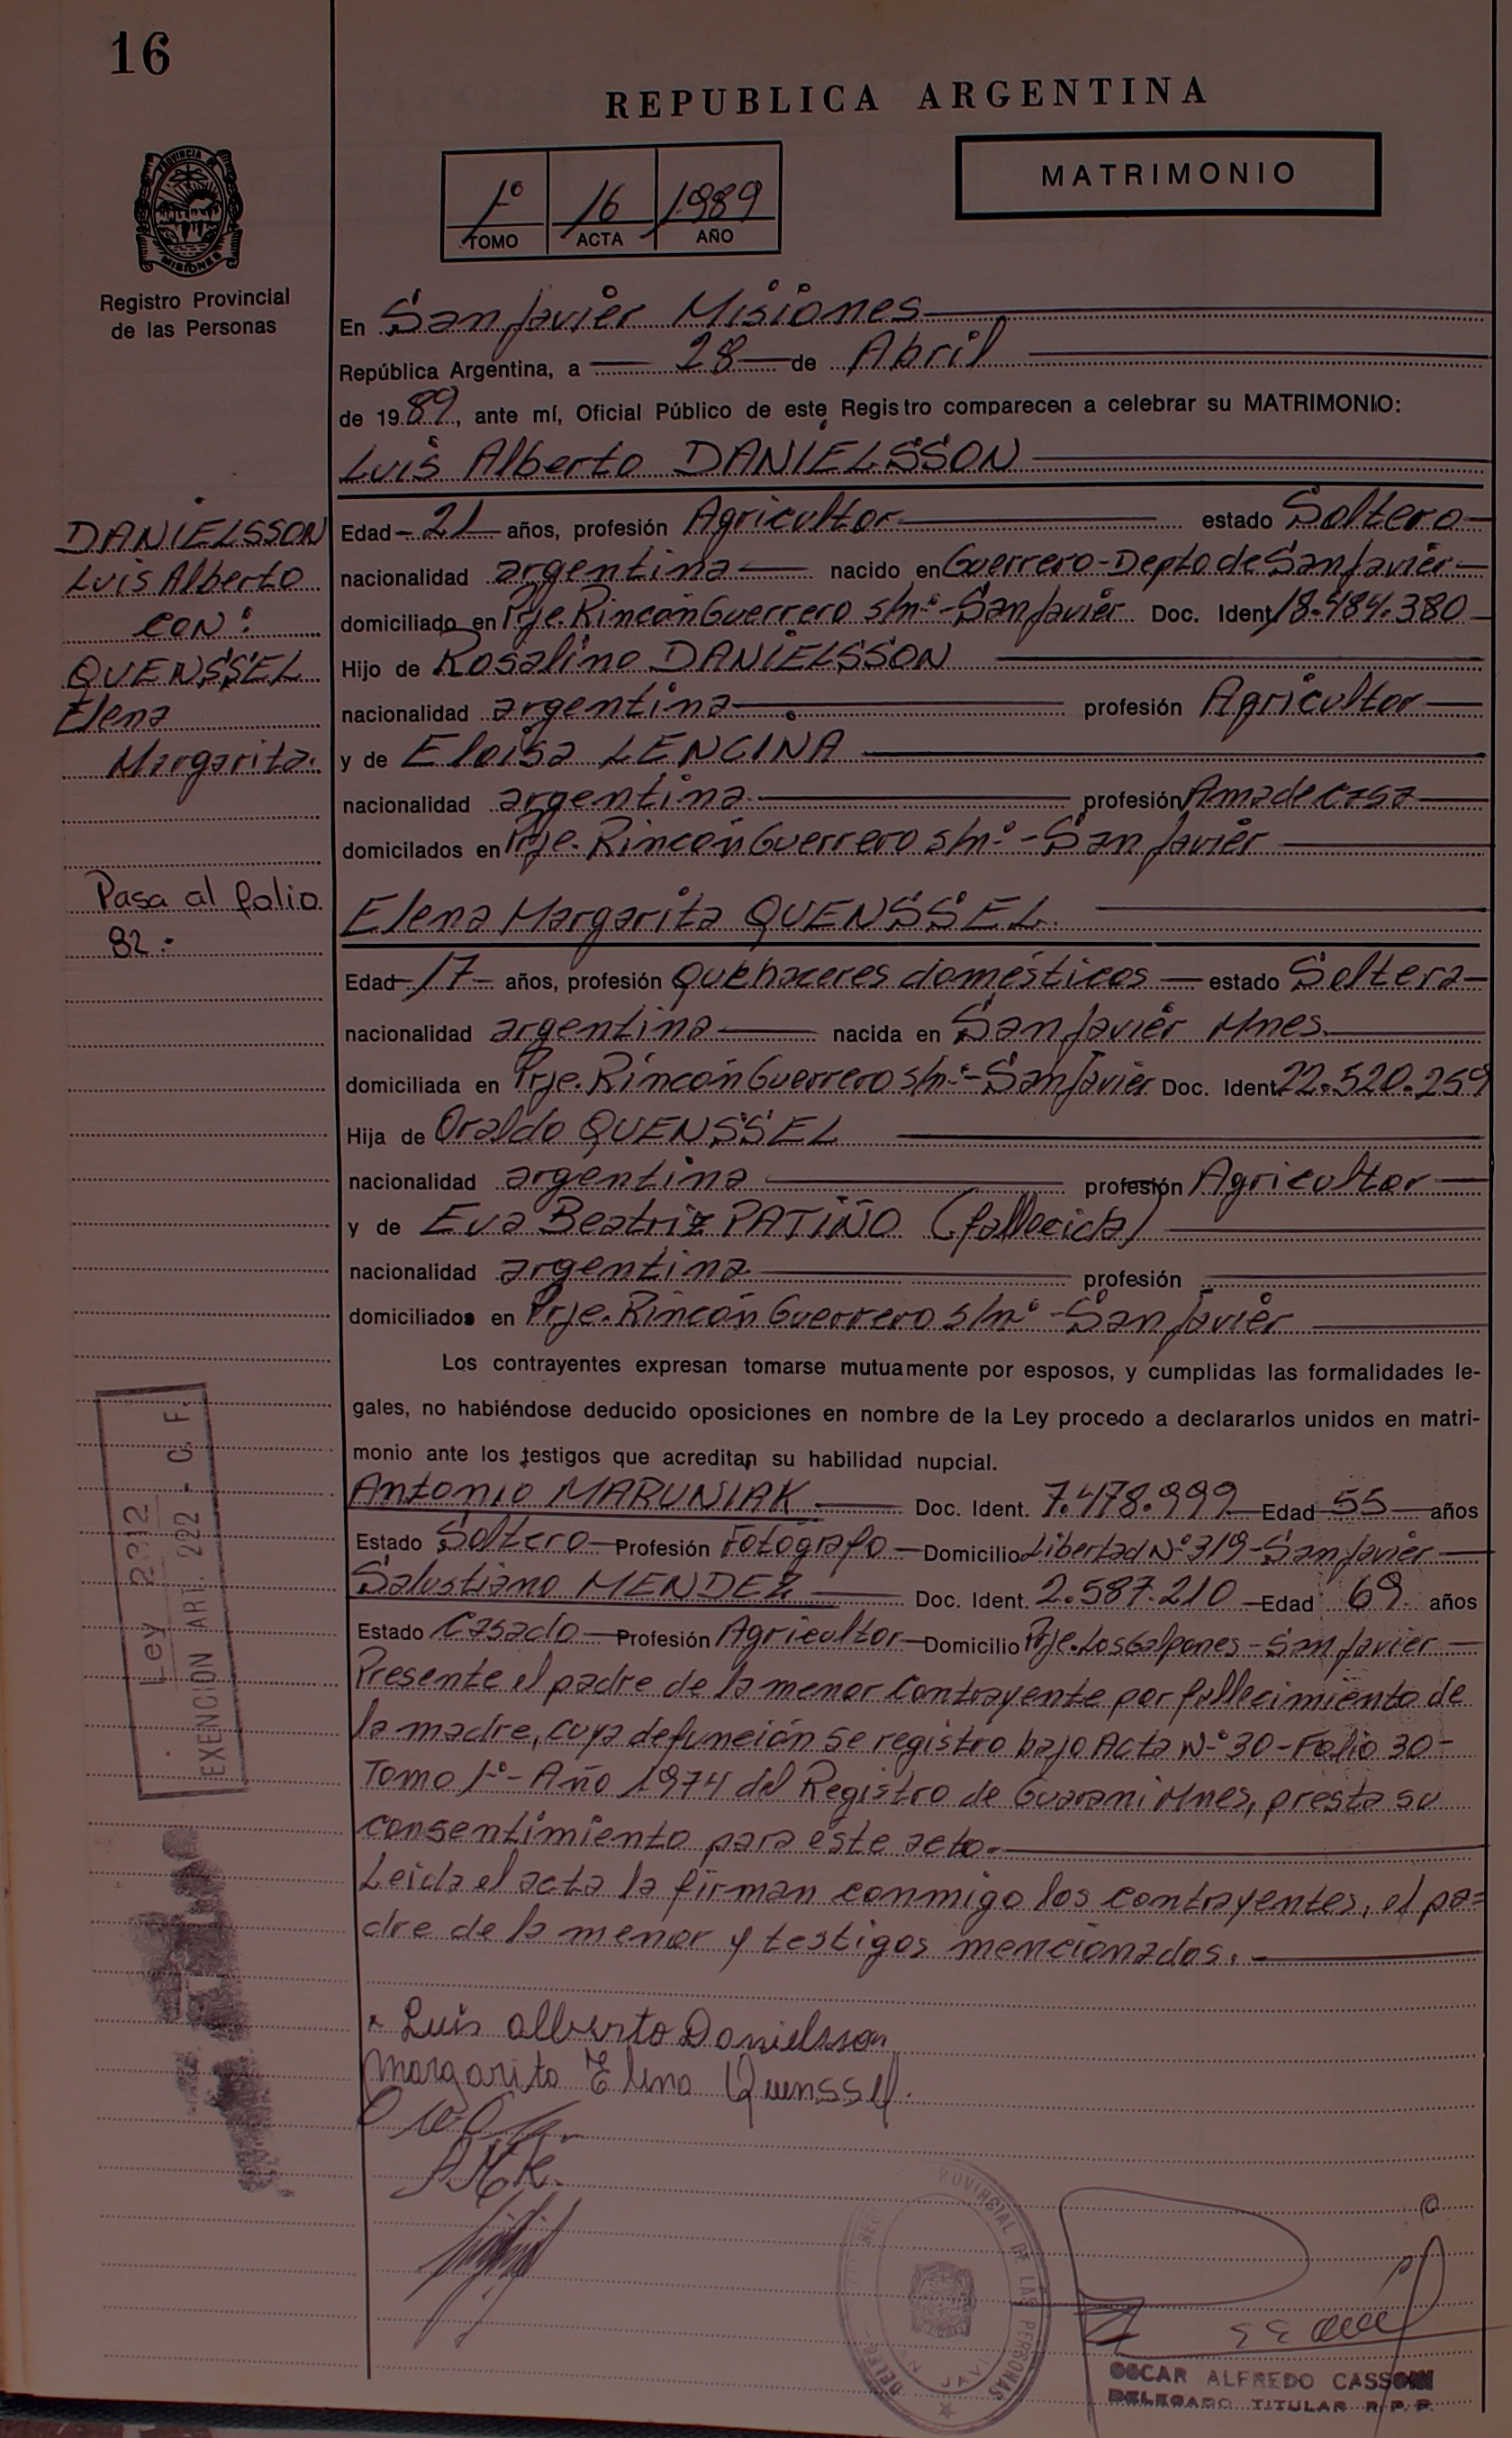 16
REPUBLICA ARGENTINA
MATRIMONIO
1º 16 1989
TOMO ACTA AÑO
PROVINCIA DE
MISIONES
Registro Provincial
de las Personas
En San Javier Misiones
República Argentina, a 28 de Abril
de 1989, ante mí, Oficial Público de este Registro comparecen a celebrar su MATRIMONIO:
Luis Alberto DANIELSSON
DANIELSSON
Luis Alberto
CON:
QUENSSEL
Elena
Margarita.
Edad 21 años, profesión Agricultor estado Soltero
nacionalidad argentina nacido en Guerrero-Depto de San Javier
domiciliado en Prje. Rincón Guerrero s/nº-San Javier Doc. Ident 18.484.380
Hijo de Rosalino DANIELSSON
nacionalidad argentina profesión Agricultor
y de Eloisa LENCINA
nacionalidad argentina profesión Ama de casa
domicilados en Prje. Rincón Guerrero s/nº-San Javier
Pasa al folio
92.-
Elena Margarita QUENSSEL.
Edad 17 años, profesión Quehaceres domésticos estado Soltera
nacionalidad argentina nacida en San Javier Mnes.
domiciliada en Prje. Rincón Guerrero s/nº-San Javier Doc. Ident 22.520.259
Hija de Oraldo QUENSSEL
nacionalidad argentina profesión Agricultor
y de Eva Beatriz PATIÑO (fallecida)
nacionalidad argentina profesión
domiciliados en Prje. Rincón Guerrero s/nº-San Javier
Los contrayentes expresan tomarse mutuamente por esposos, y cumplidas las formalidades le-
gales, no habiéndose deducido oposiciones en nombre de la Ley procedo a declararlos unidos en matri-
monio ante los testigos que acreditan su habilidad nupcial.
Antonio MARUNIAK Doc. Ident. 7.478.999 Edad 55 años
Estado Soltero Profesión Fotógrafo Domicilio Libertad Nº 319-San Javier
Salustiano MENDEZ Doc. Ident. 2.587.210 Edad 69 años
Estado Casado Profesión Agricultor Domicilio Prje. Los Galpones-San Javier
Ley 2312
EXENCION ART. 222 - C. F.
Presente el padre de la menor contrayente por fallecimiento de
la madre, cuya defunción se registró bajo Acta Nº 30-Folio 30-
Tomo 1º-Año 1974 del Registro de Guarani Mnes, presta su
consentimiento para este acto.
Leida el acta la firman conmigo los contrayentes, el pa=
dre de la menor y testigos mencionados.
Luis Alberto Danielsson
Margarita Elena Quenssel.
PROVINCIAL DE LAS PERSONAS
OSCAR ALFREDO CASSONI
DELEGADO TITULAR R.P.P.